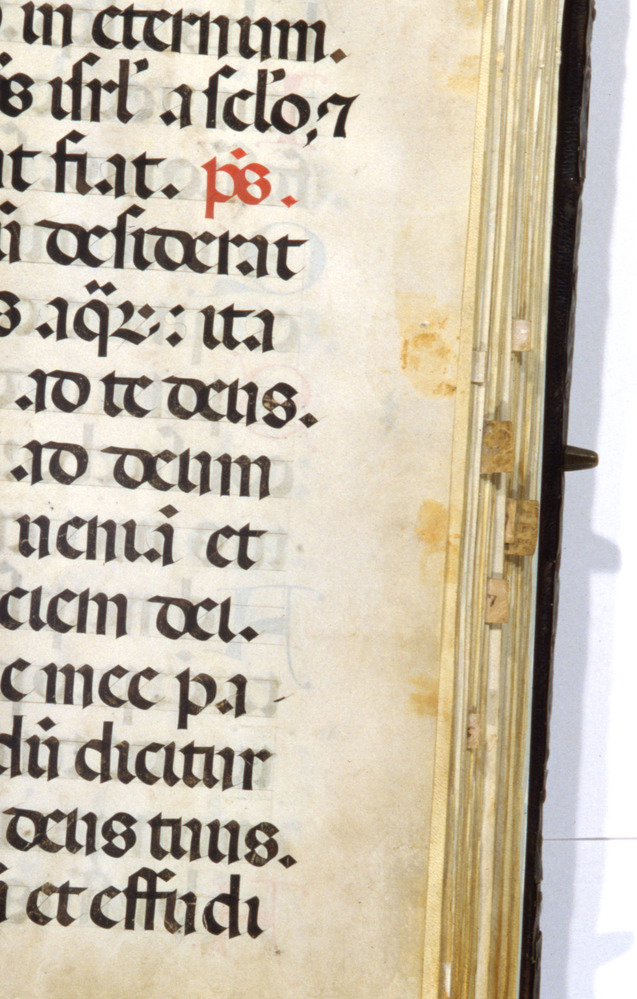 in eternum.
isrl̄ a sclo, ⁊
fiat. ps̄.
desiderat
aq̈ꝝ: ita
ad te deus.
ad deum
uemiā et
ciem dei.
e mee pa-
dū dicitur
deus tuus.
et effudi
7